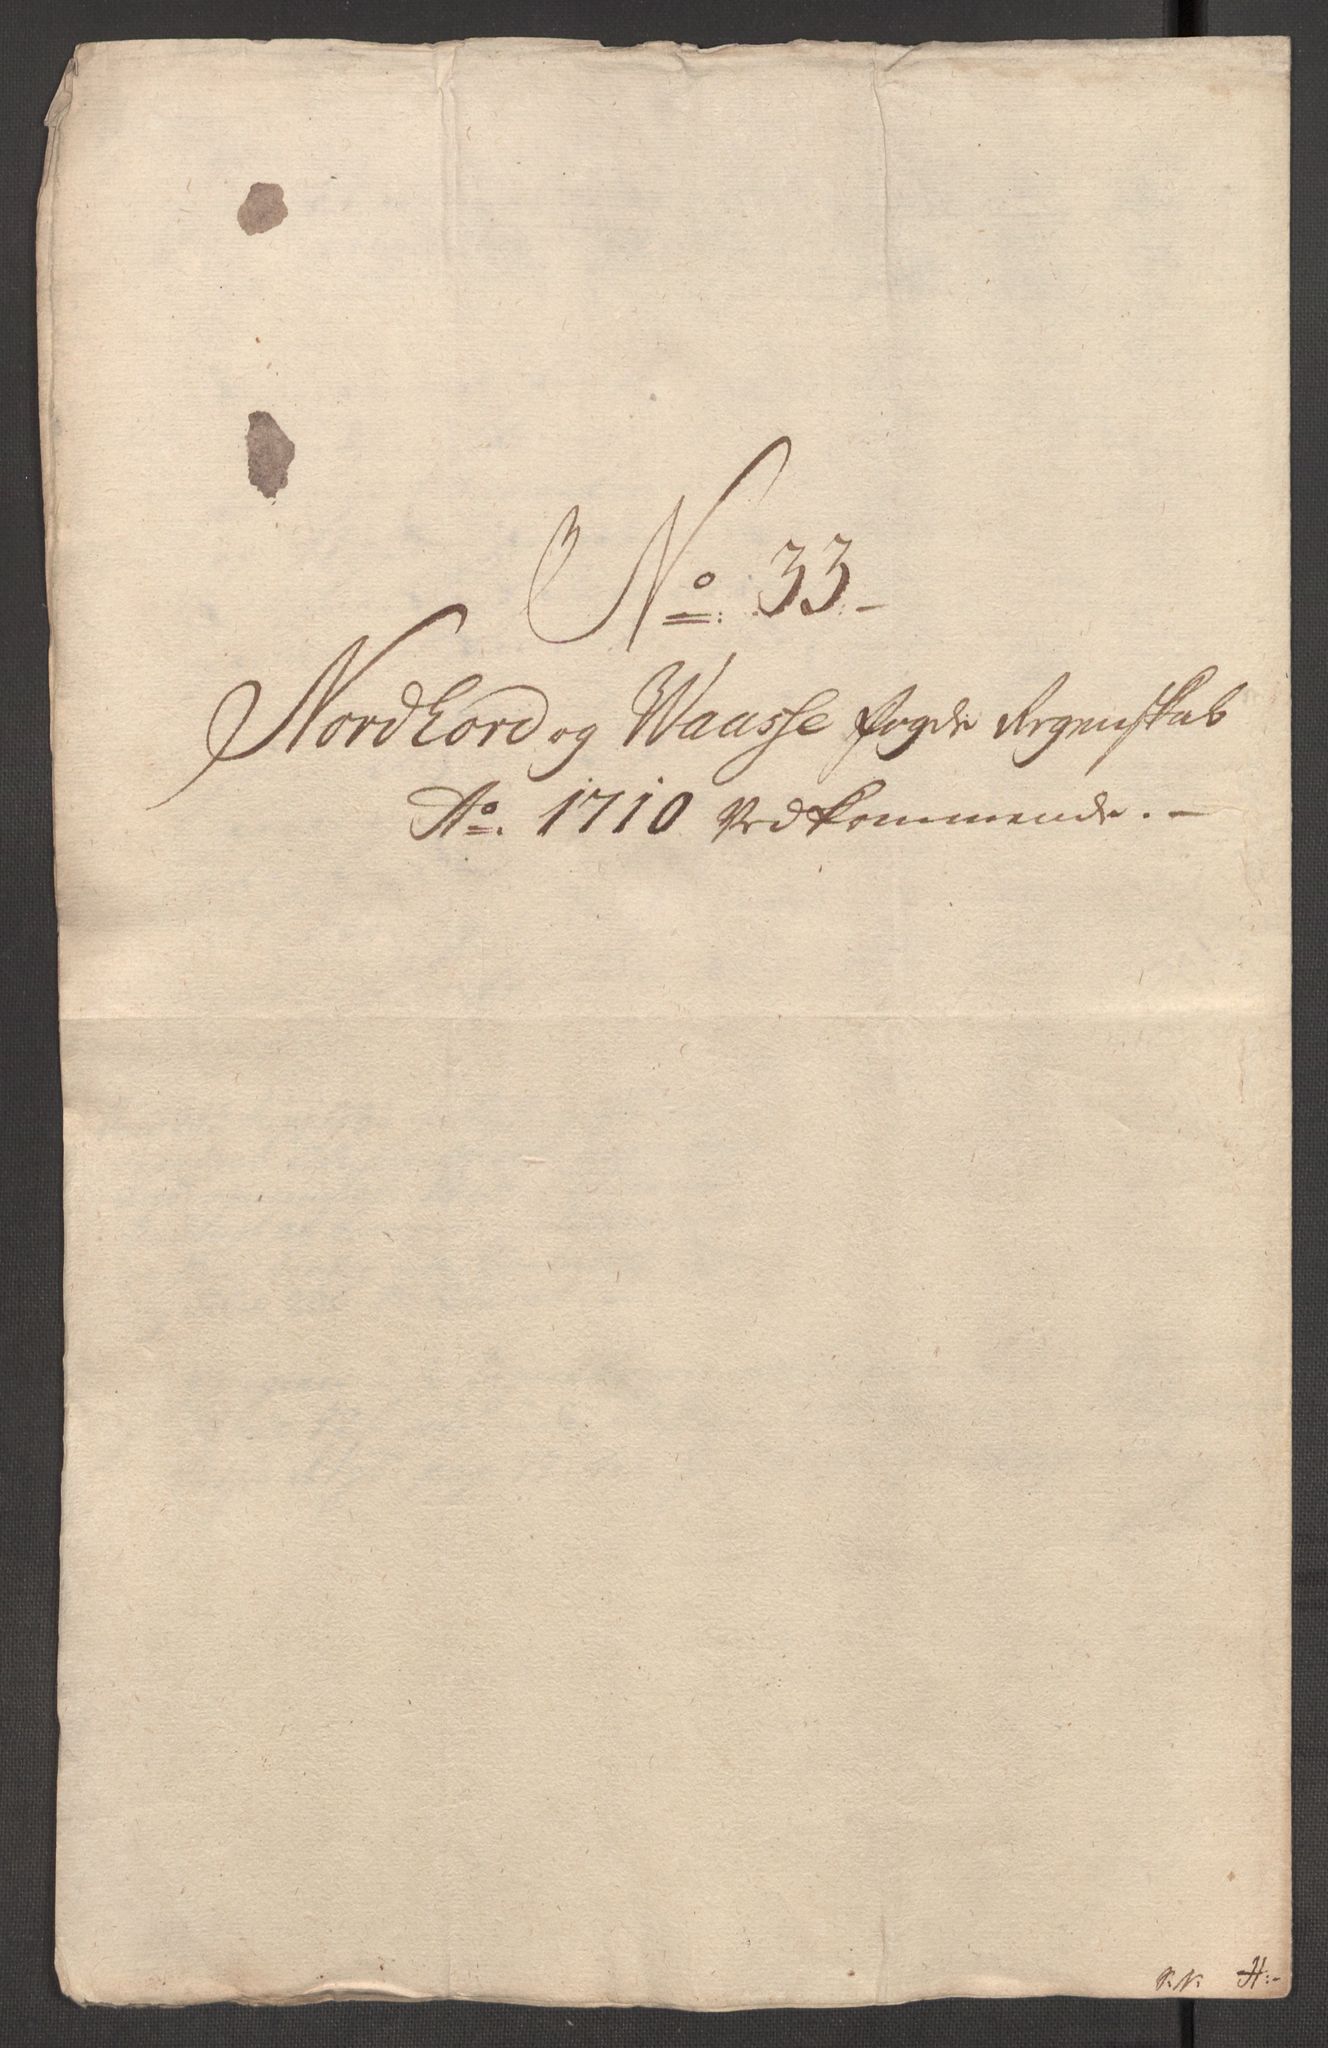 No. 33.-
Nordhord og Waasse fogde Regenskab
Ao. 1710 Vedkommende. -